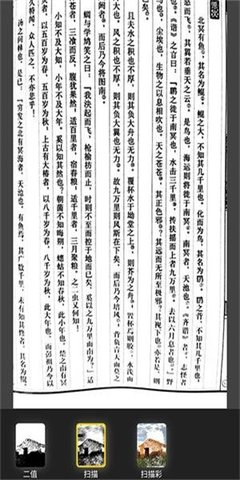 北冥有鱼,其名为鲲。鲲之大,不知其几千里也。化而为鸟,其名为鹏。鹏之背,不知其几千里也
怒而飞,其翼若垂天之云。是鸟也,海运则将徙于南冥。南冥者,天池也。《齐谐》者,志怪者
也。《谐》之言曰:“鹏之徙于南冥也,水击三千里,抟扶摇而上者九万里,去以六月息者也。”野
马也,尘埃也,生物之以息相吹也。天之苍苍,其正色邪?其远而无所至极邪?其视下也,亦若是,则
且夫水之积也不厚,则其负大舟也无力。覆杯水于坳堂之上,则芥为之舟,置杯焉则胶,水浅而
大也。风之积也不厚,则其负大翼也无力。故九万里则风斯在下矣,而后乃今培风;背负青天而莫之
者,而后乃今将图南。
蜩与学鸠笑之曰:“我决起而飞,枪榆枋而止,时则不至而控于地而已矣,奚以之九万里而南为?”适
苍者,三飡而反,腹犹果然;适百里者,宿舂粮;适千里者,三月聚粮。之二虫又何知!
小知不及大知,小年不及大年。奚以知其然也?朝菌不知晦朔,蟪蛄不知春秋,此小年也。楚之南有冥
者,以五百岁为春,五百岁为秋;上古有大椿者,以八千岁为春,八千岁为秋,此大年也。而彭祖乃今以
久特闻,众人匹之,不亦悲乎!
汤之问棘也,是已:“穷发之北有冥海者,天池也。有鱼焉,其广数千里,未有知其修者,其名为
二值
扫描
扫描彩